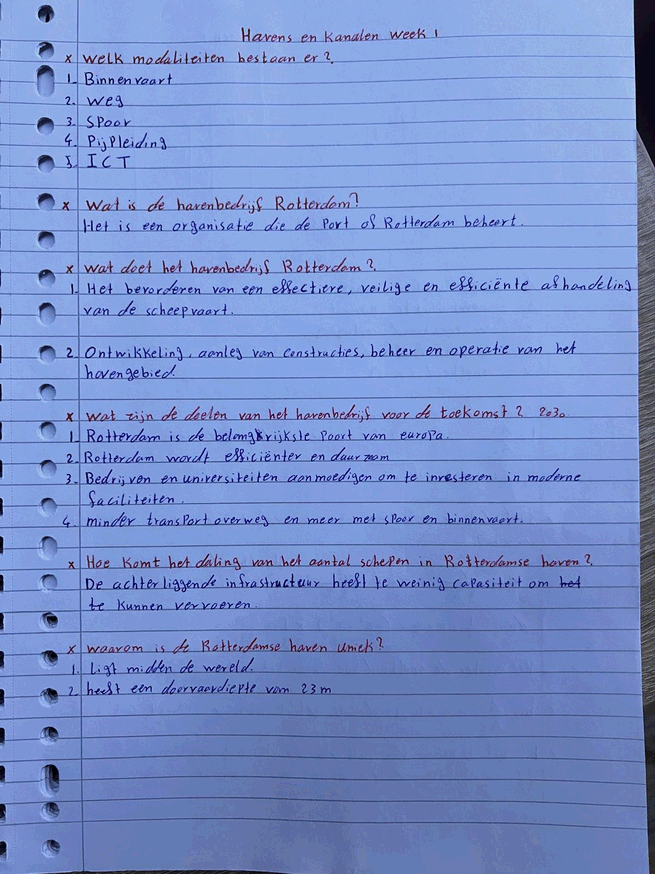 Havens en Kanalen week 1
x welk modaliteiten bestaan er?
1. Binnenvaart
2. weg
3. Spoor
4. Pijpleiding
5. ICT
x Wat is de havenbedrijf Rotterdam?
Het is een organisatie die de Port of Rotterdam beheert.
x wat doet het havenbedrijf Rotterdam?
1. Het bevorderen van een effectieve, veilige en efficiënte afhandeling
van de scheepvaart.
2. Ontwikkeling, aanleg van constructies, beheer en operatie van het
havengebied.
x wat zijn de doelen van het havenbedrijf voor de toekomst? 2030
1. Rotterdam is de belangrijkste Poort van europa.
2. Rotterdam wordt efficiënter en duurzaam
3. Bedrijven en universiteiten aanmoedigen om te investeren in moderne
faciliteiten.
4. minder transport overweg en meer met spoor en binnenvaart.
x Hoe komt het daling van het aantal schepen in Rotterdamse haven?
De achterliggende infrastructuur heeft te weinig capasiteit om het
te kunnen vervoeren.
x waarom is de Rotterdamse haven uniek?
1. ligt midden de wereld.
2. heeft een doorvaardiepte van 23 m